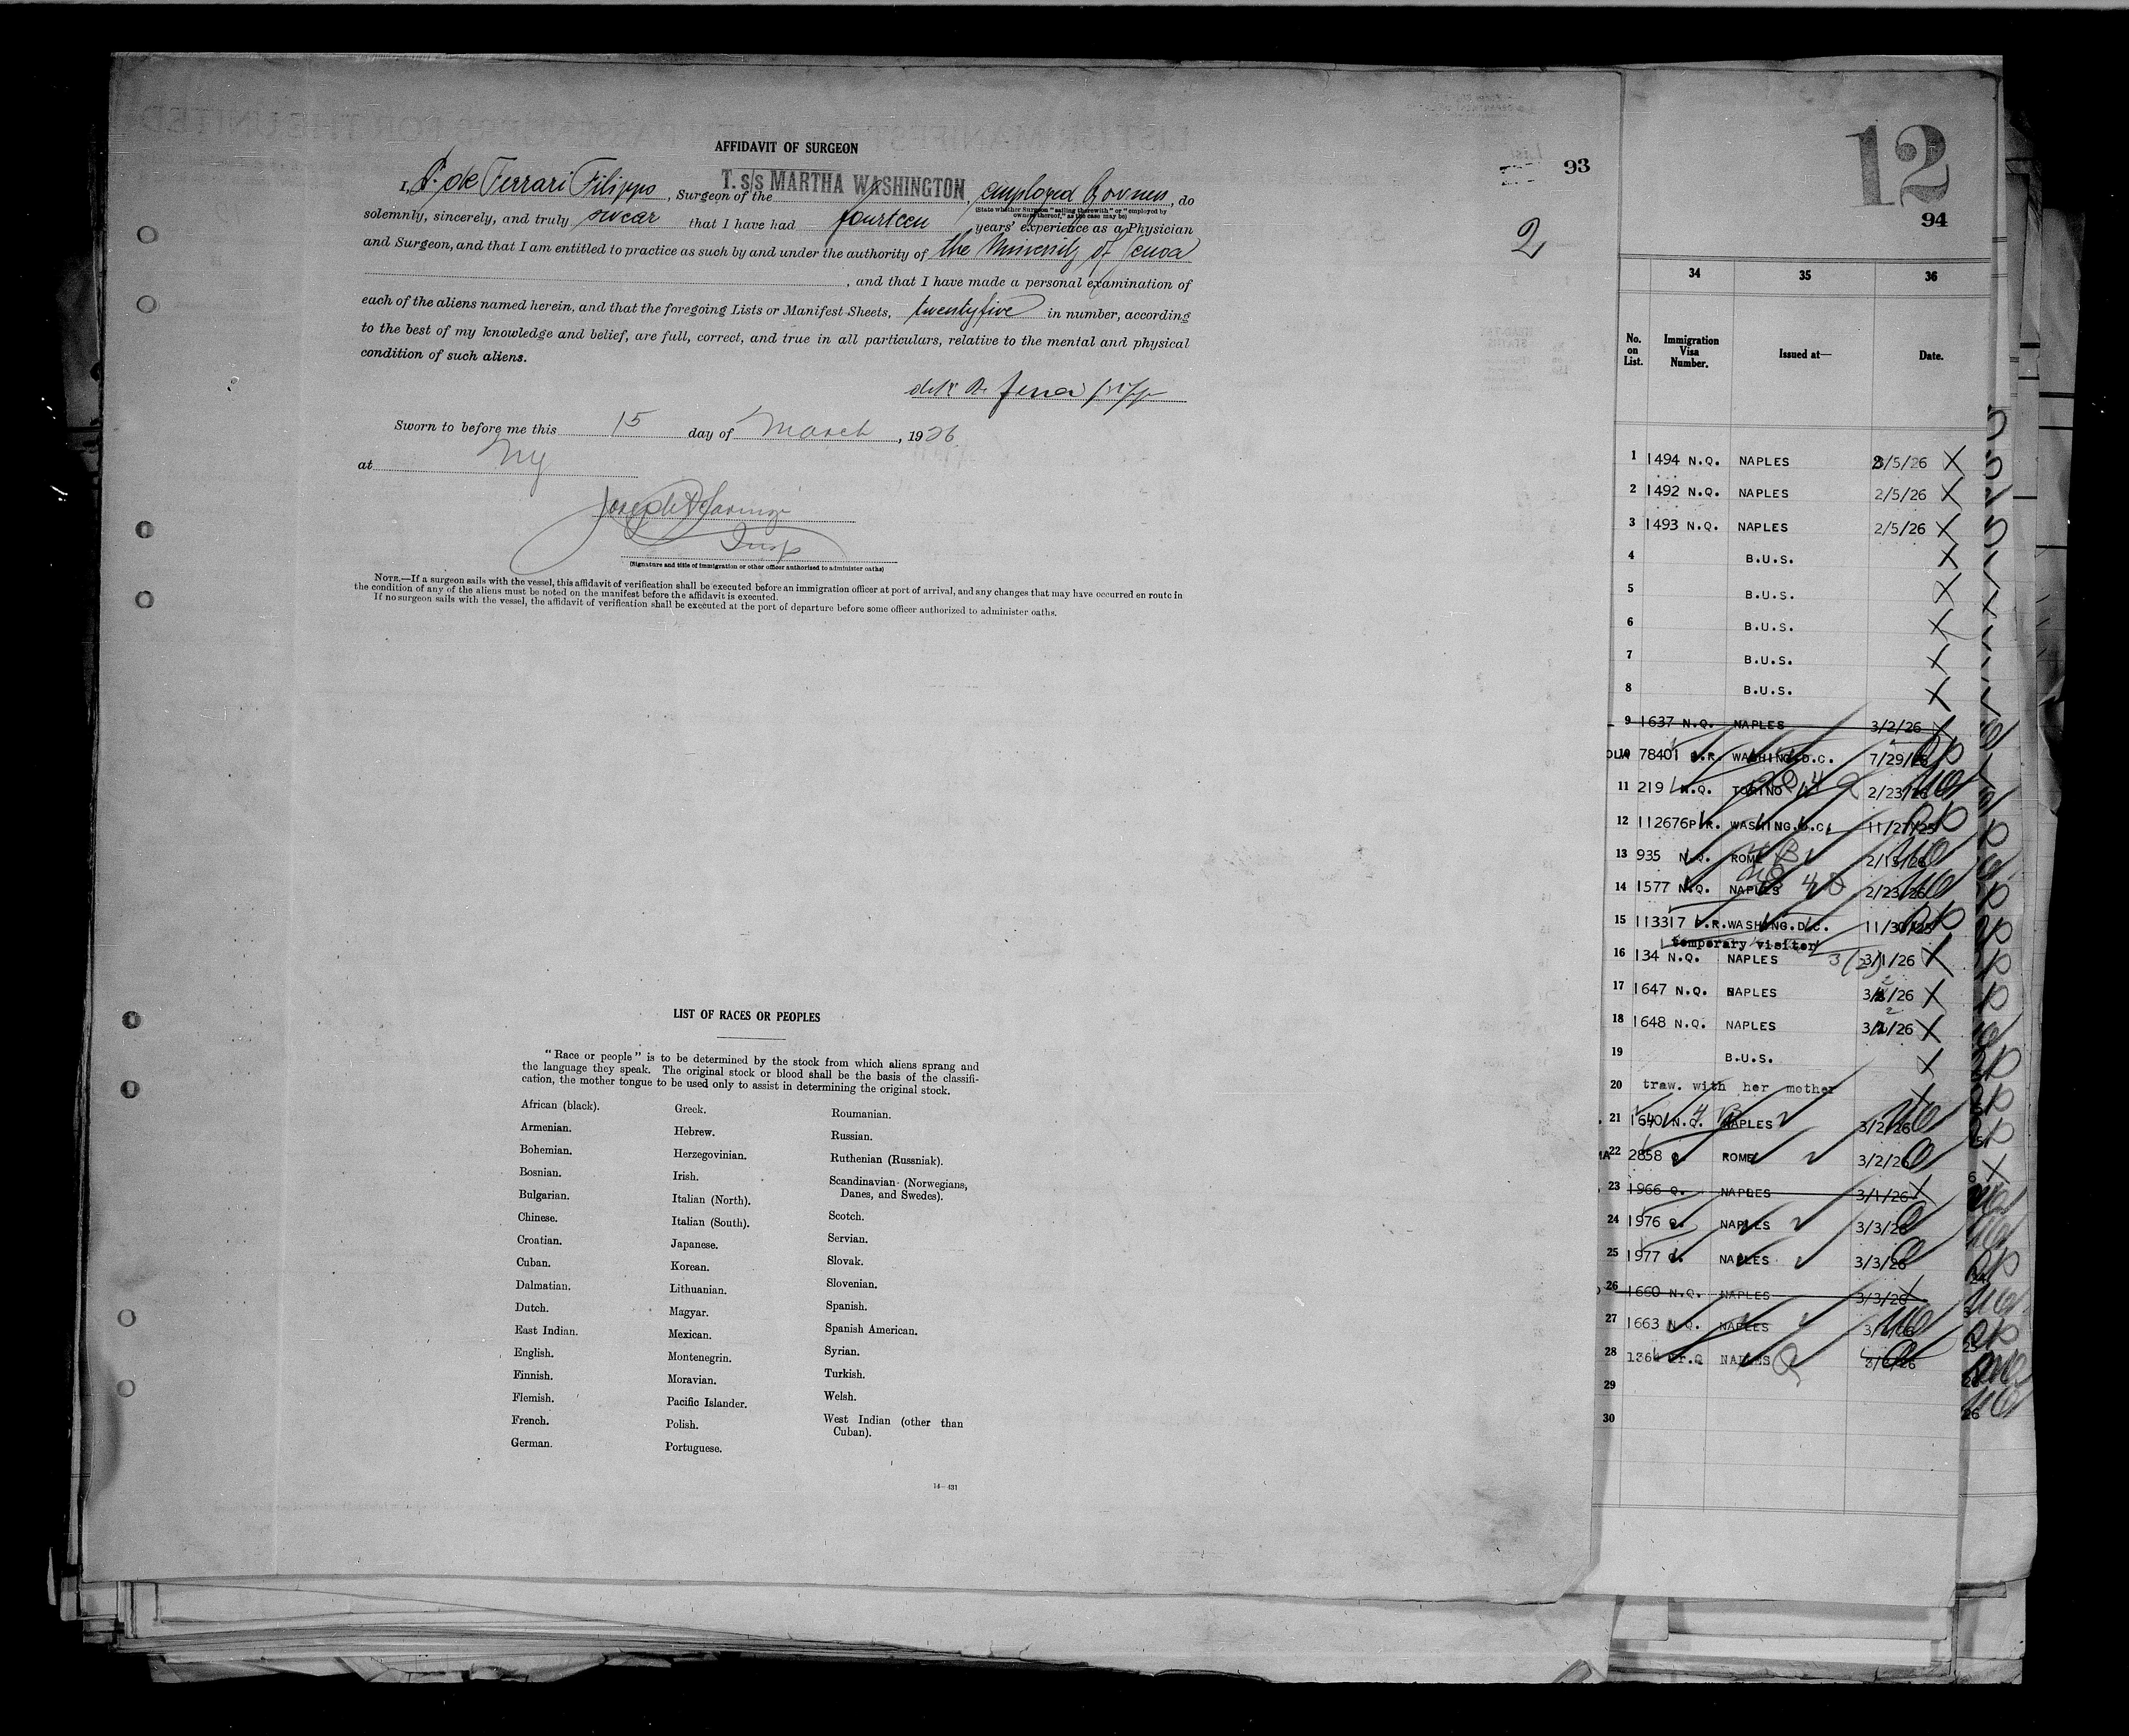 AFFIDAVIT OF SURGEON
I, de Ferrari Filippo, Surgeon of the T. s/s MARTHA WASHINGTON, employed by owners, do
(State whether Surgeon "sailing therewith" or "employed by
owners thereof," as the case may be)
solemnly, sincerely, and truly swear that I have had fourteen years' experience as a Physician
and Surgeon, and that I am entitled to practice as such by and under the authority of the University of Genoa
, and that I have made a personal examination of
each of the aliens named herein, and that the foregoing Lists or Manifest Sheets, twentyfive in number, according
to the best of my knowledge and belief, are full, correct, and true in all particulars, relative to the mental and physical
condition of such aliens.
Sworn to before me this 15 day of March, 1926
at NY
Insp
(Signature and title of immigration or other officer authorized to administer oaths)
NOTE.—If a surgeon sails with the vessel, this affidavit of verification shall be executed before an immigration officer at port of arrival, and any changes that may have occurred en route in
the condition of any of the aliens must be noted on the manifest before the affidavit is executed.
If no surgeon sails with the vessel, the affidavit of verification shall be executed at the port of departure before some officer authorized to administer oaths.
93
2
LIST OF RACES OR PEOPLES
"Race or people" is to be determined by the stock from which aliens sprang and
the language they speak. The original stock or blood shall be the basis of the classifi-
cation, the mother tongue to be used only to assist in determining the original stock.
African (black).
Armenian.
Bohemian.
Bosnian.
Bulgarian.
Chinese.
Croatian.
Cuban.
Dalmatian.
Dutch.
East Indian.
English.
Finnish.
Flemish.
French.
German.
Greek.
Hebrew.
Herzegovinian.
Irish.
Italian (North).
Italian (South).
Japanese.
Korean.
Lithuanian.
Magyar.
Mexican.
Montenegrin.
Moravian.
Pacific Islander.
Polish.
Portuguese.
Roumanian.
Russian.
Ruthenian (Russniak).
Scandinavian (Norwegians,
Danes, and Swedes).
Scotch.
Servian.
Slovak.
Slovenian.
Spanish.
Spanish American.
Syrian.
Turkish.
Welsh.
West Indian (other than
Cuban).
14—431
12
94
34 35 36
No. on List. Immigration Visa Number. Issued at— Date.
1 1494 N.Q. NAPLES 2/5/26 X
2 1492 N.Q. NAPLES 2/5/26 X
3 1493 N.Q. NAPLES 2/5/26 X
4 B.U.S. X
5 B.U.S. X
6 B.U.S. X
7 B.U.S. X
8 B.U.S. X
9 1637 N.Q. NAPLES 3/2/26 X
10 78401 P.R. WASHING.D.C. 7/29/
11 219 N.Q. TORINO 2/23/26
12 112676 P.R. WASHING.D.C. 11/27/25
13 935 N.Q. ROME 2/15/26
14 1577 N.Q. NAPLES 2/23/26
15 113317 P.R. WASHING.D.C. 11/30/25
temporary visitor
16 134 N.Q. NAPLES 3/1/26 X
17 1647 N.Q. NAPLES 3/2/26 X
18 1648 N.Q. NAPLES 3/2/26 X
19 B.U.S. X
20 traw. with her mother X
21 1640 N.Q. NAPLES 3/2/26
22 2858 Q. ROME 3/2/26
23 1966 Q. NAPLES 3/1/26 X
24 1976 Q. NAPLES 3/3/26
25 1977 Q. NAPLES 3/3/26
26 1660 N.Q. NAPLES 3/3/26 X
27 1663 N.Q. NAPLES
28 NAPLES
29
30